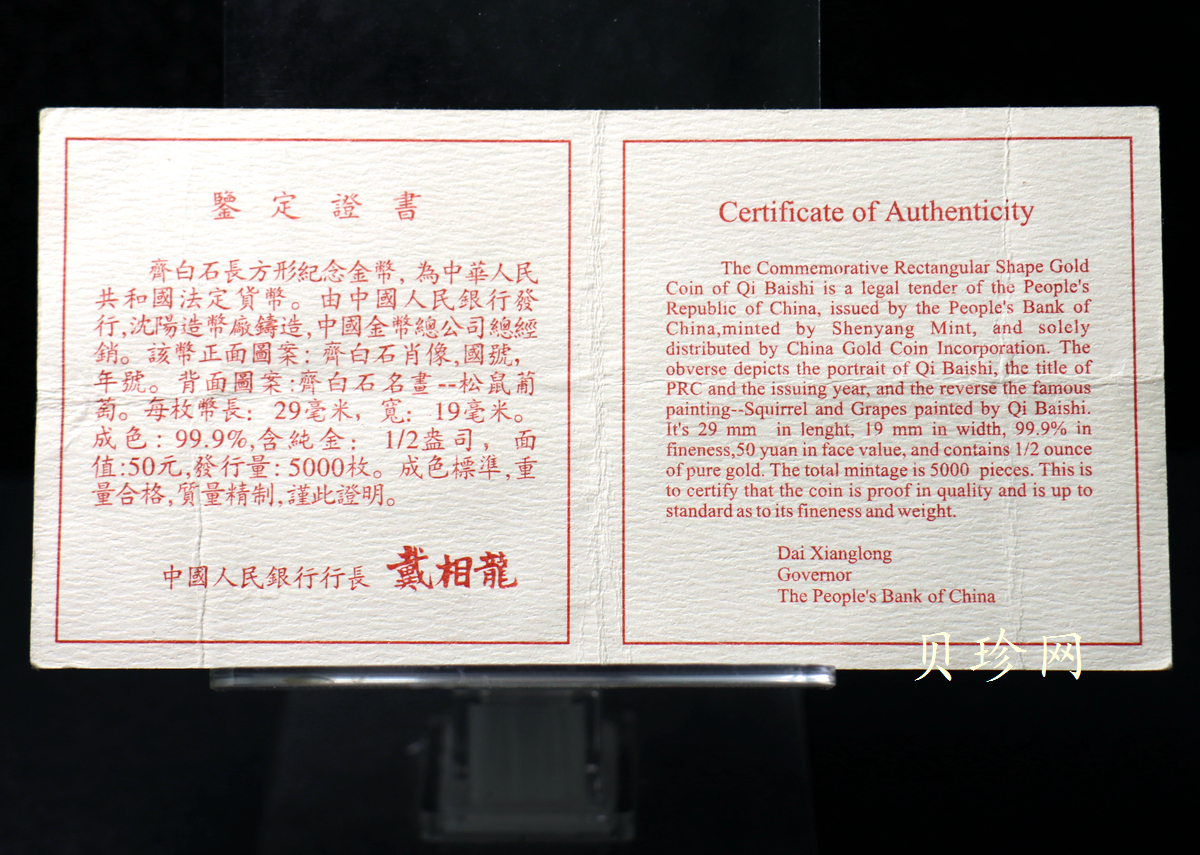 鑒定證書
齊白石長方形紀念金幣，為中華人民
共和國法定貨幣。由中國人民銀行發
行,沈陽造幣廠鑄造,中國金幣總公司總經
銷。該幣正面圖案：齊白石肖像,國號，
年號。背面圖案:齊白石名畫--松鼠葡
萄。每枚幣長：29毫米，寬：19毫米。
成色：99.9%,含純金：1/2盎司，面
值:50元,發行量：5000枚。成色標準,重
量合格,質量精制,謹此證明。
中國人民銀行行長 戴相龍
Certificate of Authenticity
The Commemorative Rectangular Shape Gold
Coin of Qi Baishi is a legal tender of the People's
Republic of China, issued by the People's Bank of
China,minted by Shenyang Mint, and solely
distributed by China Gold Coin Incorporation. The
obverse depicts the portrait of Qi Baishi, the title of
PRC and the issuing year, and the reverse the famous
painting--Squirrel and Grapes painted by Qi Baishi.
It's 29 mm in lenght, 19 mm in width, 99.9% in
fineness,50 yuan in face value, and contains 1/2 ounce
of pure gold. The total mintage is 5000 pieces. This is
to certify that the coin is proof in quality and is up to
standard as to its fineness and weight.
Dai Xianglong
Governor
The People's Bank of China
贝珍网